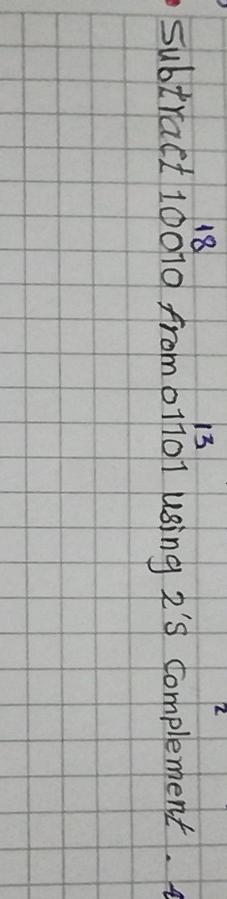 18 13 2
Subtract 10010 from 01101 using 2's complement.